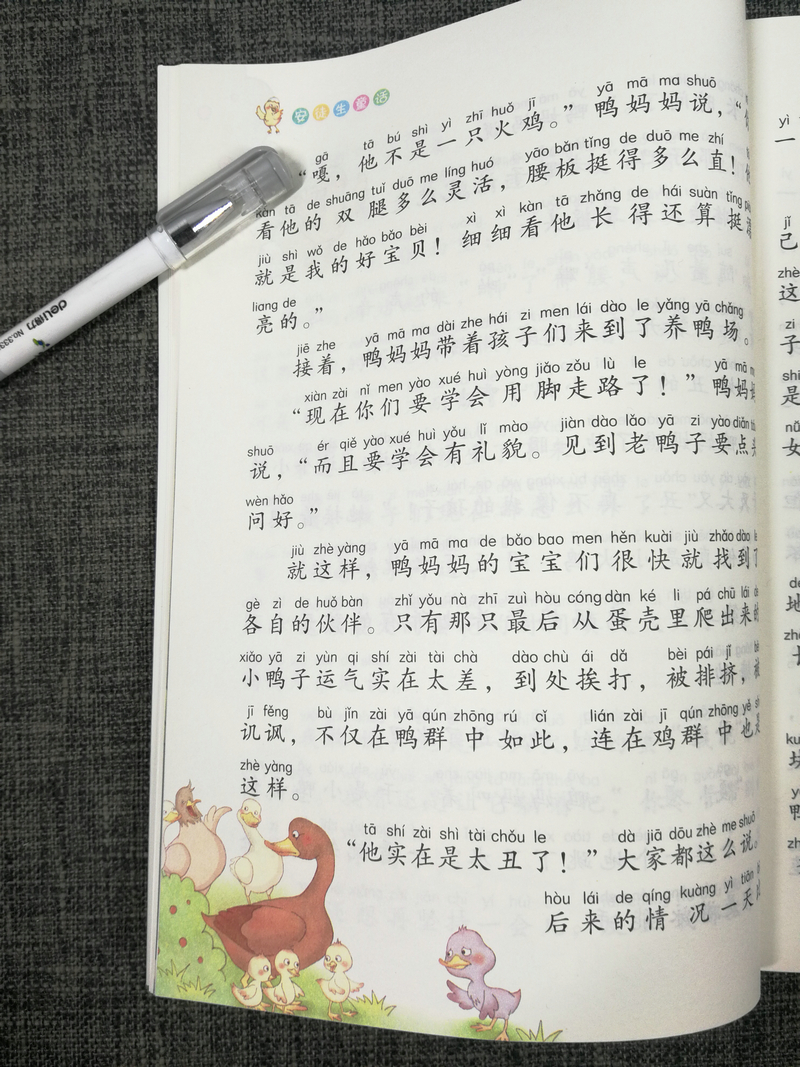 安徒生童话
gā tā bú shì yì zhī huǒ jī yā mā ma shuō
“嘎，他不是一只火鸡。”鸭妈妈说，“
kàn tā de shuāng tuǐ duō me líng huó yāo bǎn tǐng de duō me zhí
看他的双腿多么灵活，腰板挺得多么直！
jiù shì wǒ de hǎo bǎo bèi xì xì kàn tā zhǎng de hái suàn tǐng
就是我的好宝贝！细细看他长得还算挺漂
liang de
亮的。”
jiē zhe yā mā ma dài zhe hái zi men lái dào le yǎng yā chǎng
接着，鸭妈妈带着孩子们来到了养鸭场。
xiàn zài nǐ men yào xué huì yòng jiǎo zǒu lù le yā mā
“现在你们要学会用脚走路了！”鸭妈
shuō ér qiě yào xué huì yǒu lǐ mào jiàn dào lǎo yā zi yào diǎn
说，“而且要学会有礼貌。见到老鸭子要点头
wèn hǎo
问好。”
jiù zhè yàng yā mā ma de bǎo bao men hěn kuài jiù zhǎo dào
就这样，鸭妈妈的宝宝们很快就找到了
gè zì de huǒ bàn zhǐ yǒu nà zhī zuì hòu cóng dàn ké li pá chū lái
各自的伙伴。只有那只最后从蛋壳里爬出来的
xiǎo yā zi yùn qi shí zài tài chà dào chù ái dǎ bèi pái jǐ
小鸭子运气实在太差，到处挨打，被排挤，被
jī fěng bù jǐn zài yā qún zhōng rú cǐ lián zài jī qún zhōng yě
讥讽，不仅在鸭群中如此，连在鸡群中也是
zhè yàng
这样。
tā shí zài shì tài chǒu le dà jiā dōu zhè me shuō
“他实在是太丑了！”大家都这么说。
hòu lái de qíng kuàng yì tiān
后来的情况一天
deli得力 No.333
yì
一
jǐ
己
zhè
这
zi
子
是
女
de
地
块
鸭